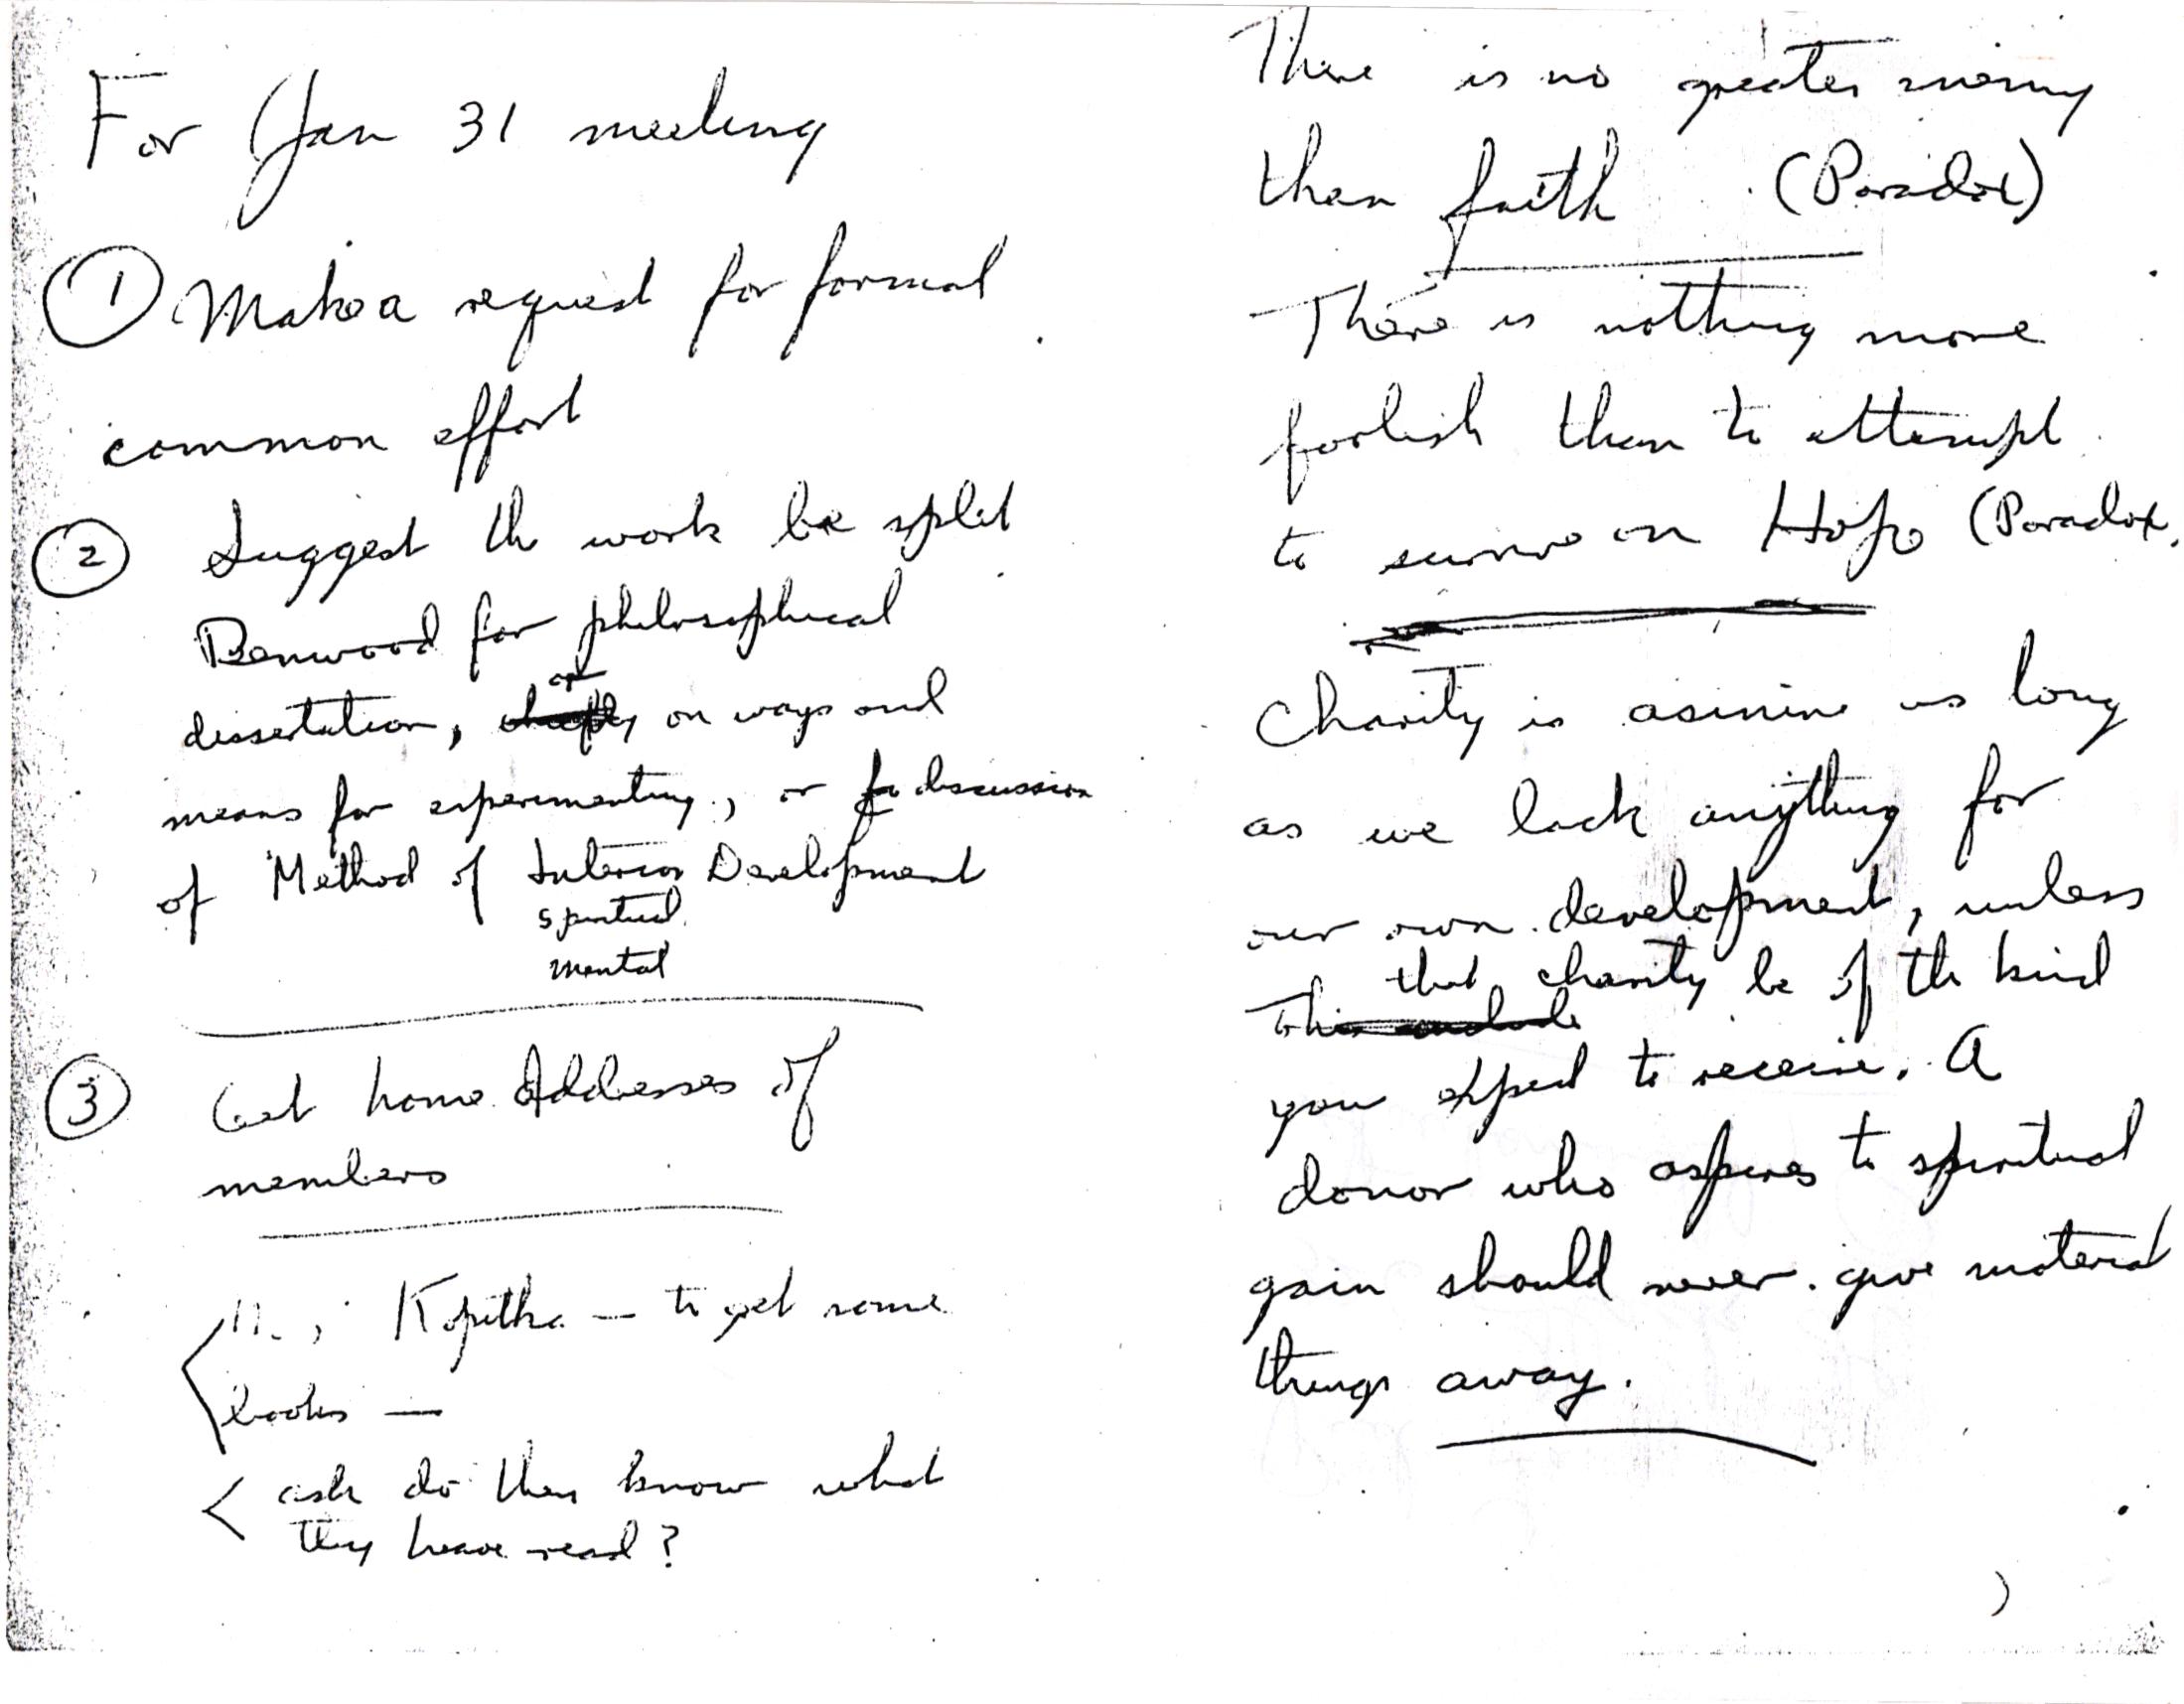 For Jan 31 meeting
① Make a request for formal
common effort
② Suggest the work be split
Benwood for philosophical
or
dissertation, on ways and
means for experimenting, or discussion
of Method of Interior Development
spiritual
mental
③ Get home Addresses of
members
Kopitka — to get some
books —
< ask do they know what
they have read?
There is no greater enemy
than faith (Paradox)
There is nothing more
foolish than to attempt
to survive on Hope (Paradox.
Charity is asinine as long
as we lack anything for
our own development, unless
that charity be of the kind
This
you expect to receive. A
donor who aspires to spiritual
gain should never give material
things away.